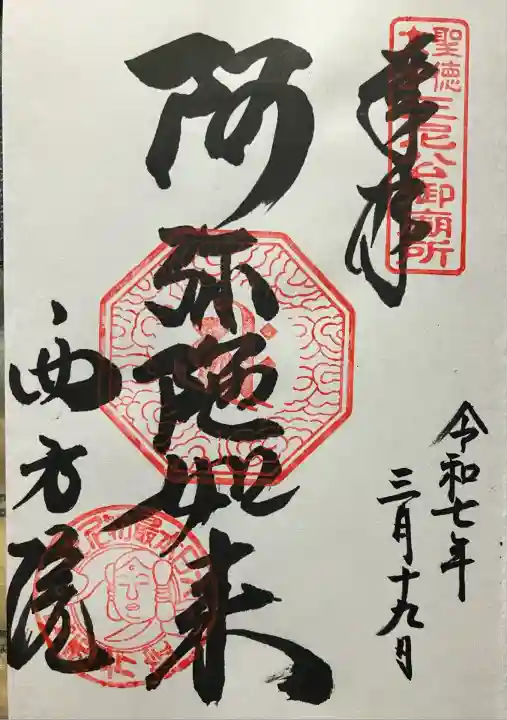 奉拝
聖徳
三尼公御廟所
令和七年
三月十九日
阿弥陀如来
西方院